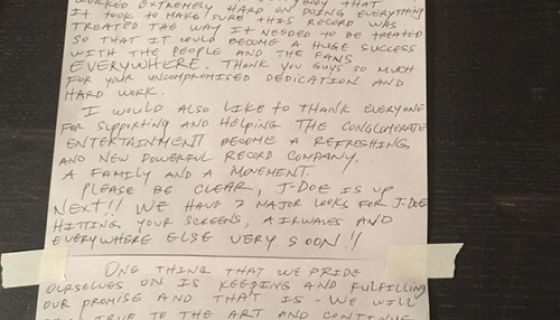 WORKED EXTREMELY HARD ON DOING EVERYTHING
IT TOOK TO MAKE SURE THIS RECORD WAS
TREATED THE WAY IT NEEDED TO BE TREATED
SO THAT IT WOULD BECOME A HUGE SUCCESS
WITH THE PEOPLE AND THE FANS
EVERYWHERE. THANK YOU GUYS SO MUCH
FOR YOUR UNCOMPROMISED DEDICATION AND
HARD WORK.
I WOULD ALSO LIKE TO THANK EVERYONE
FOR SUPPORTING AND HELPING THE CONGLOMERATE
ENTERTAINMENT BECOME A REFRESHING
AND NEW POWERFUL RECORD COMPANY.
A FAMILY AND A MOVEMENT.
PLEASE BE CLEAR, J-DOE IS UP
NEXT!! WE HAVE 2 MAJOR LOOKS FOR J-DOE
HITTING YOUR SCREENS, AIRWAVES AND
EVERYWHERE ELSE VERY SOON!!
ONE THING THAT WE PRIDE
OURSELVES ON IS KEEPING AND FULFILLING
OUR PROMISE AND THAT IS - WE WILL
TRUE TO THE ART AND CONTINUE